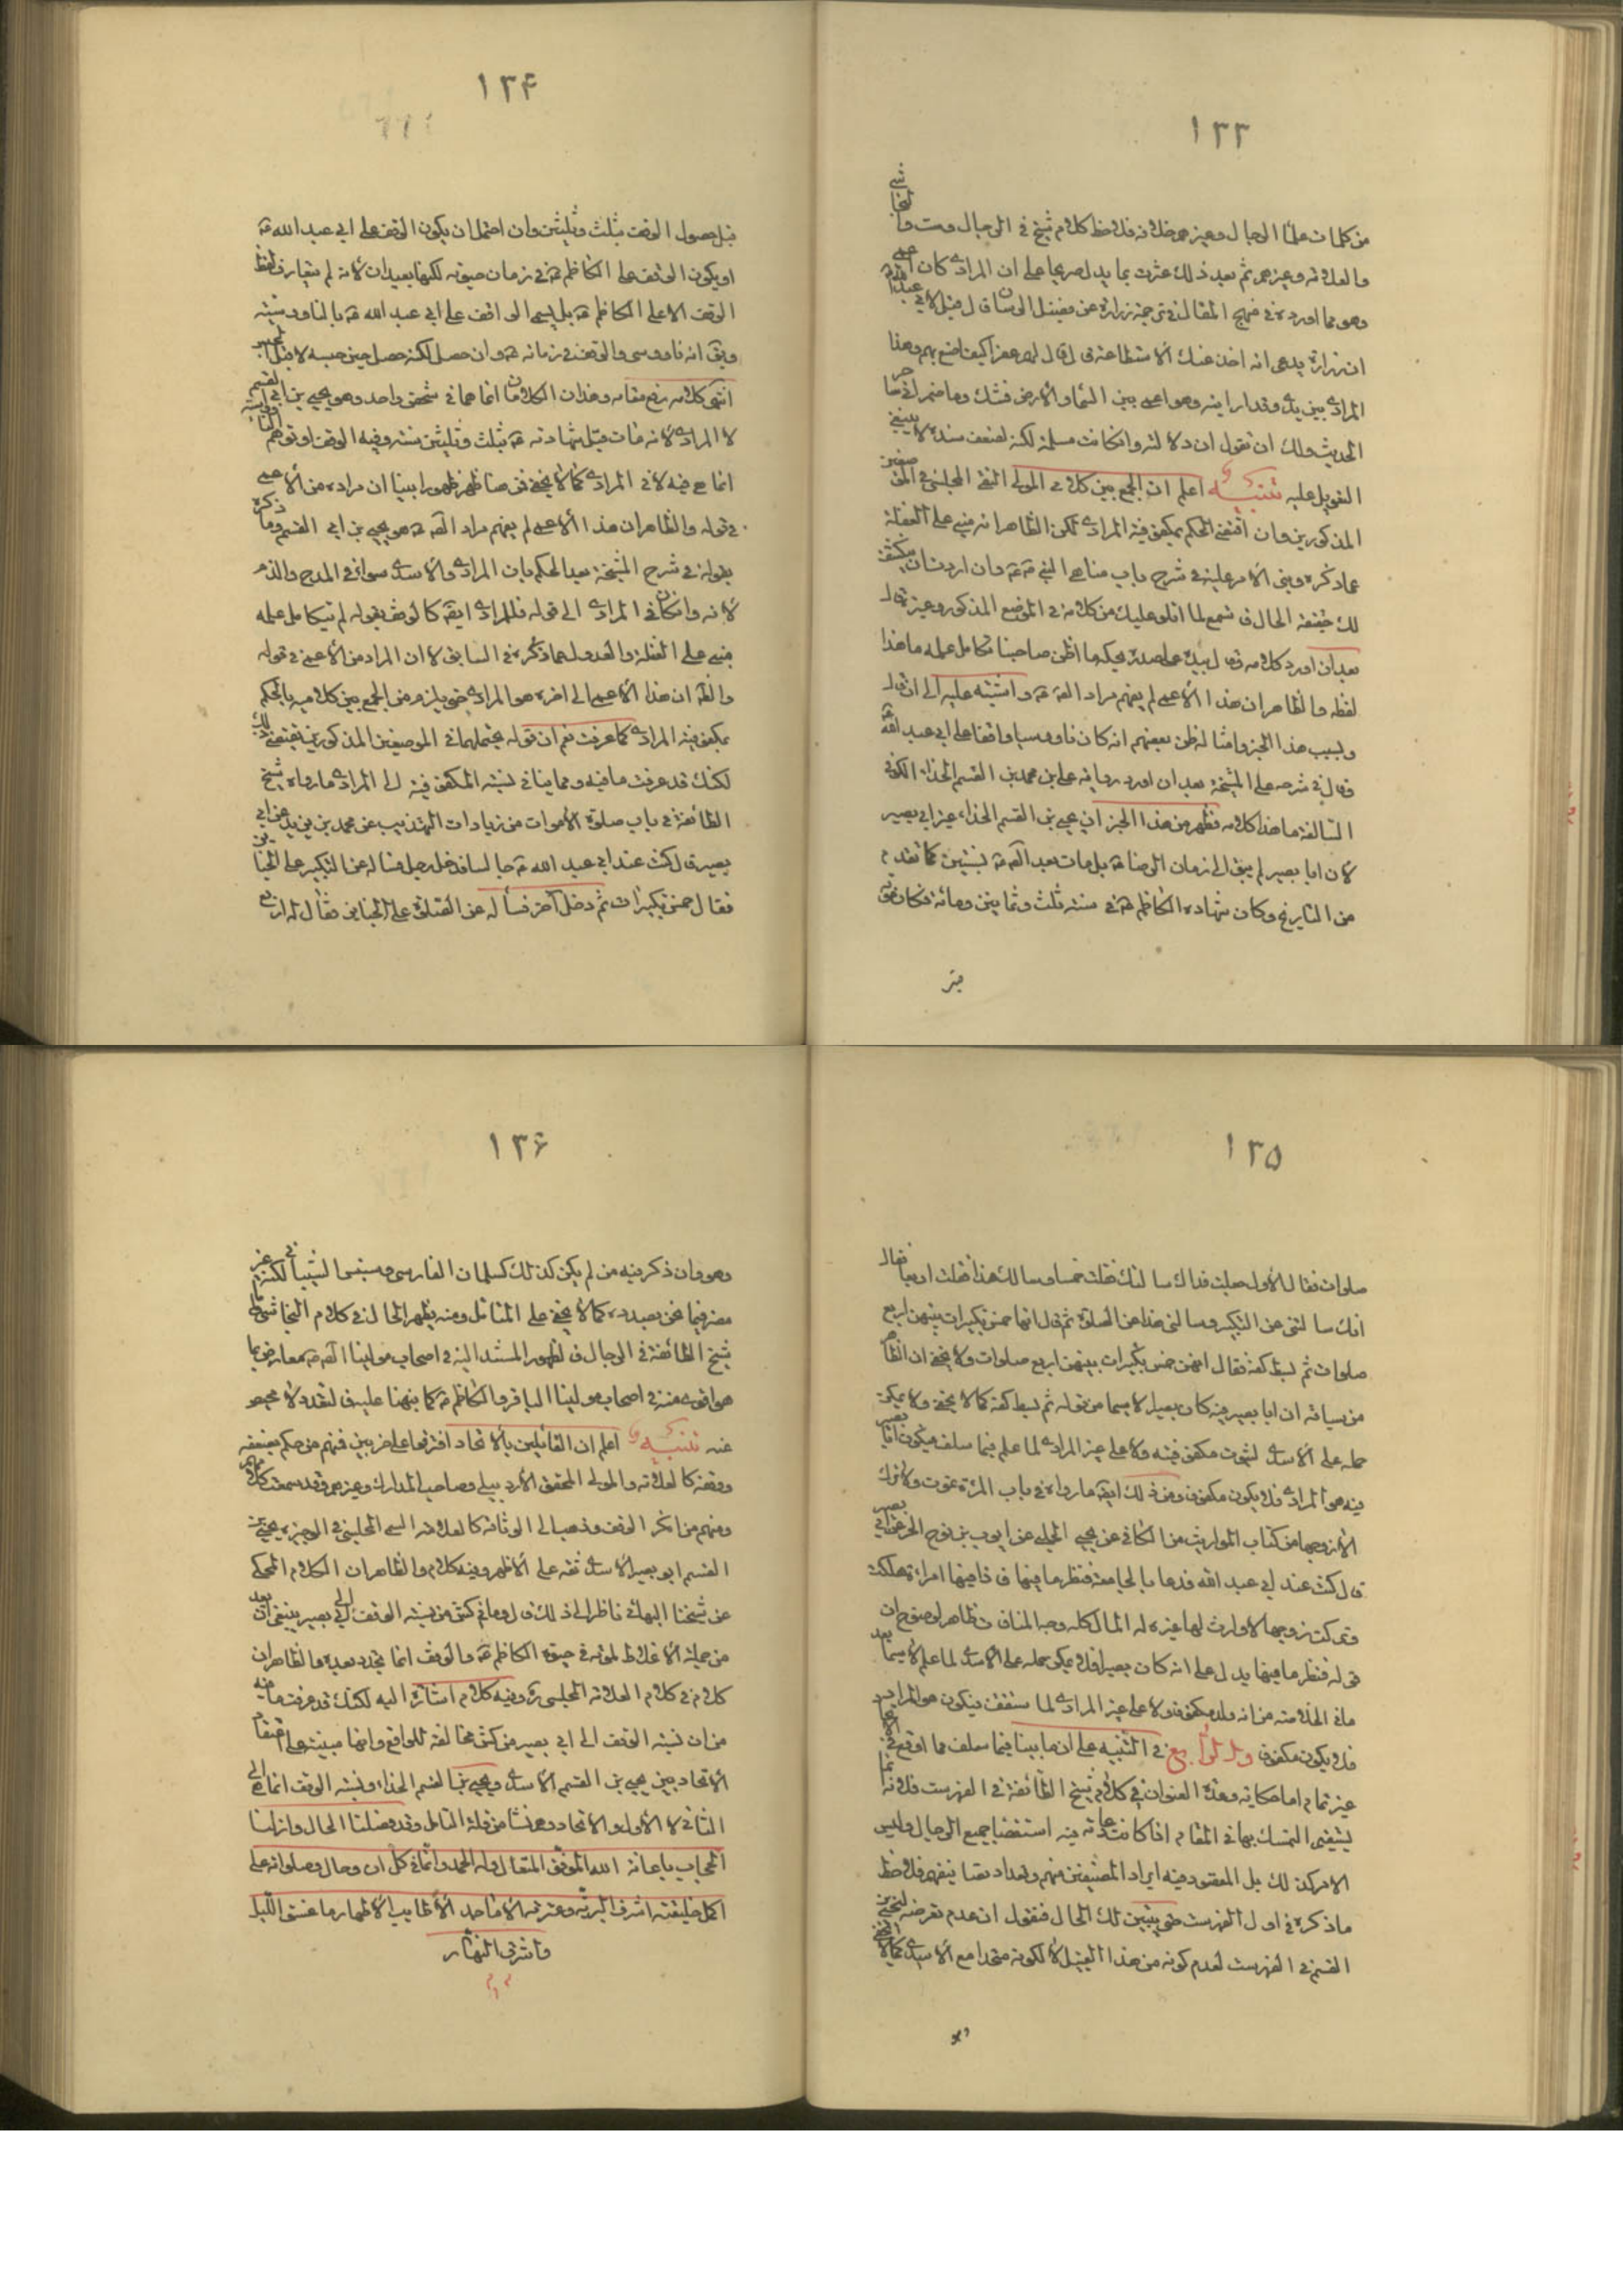 ١٣٣
من كلمات علماء الرجال وغيرهم خلافه فلاحظ كلام شيخ في الرجال وست والنجاشي
والعلامة وغيرهم ثم بعد ذلك عثرت بما يدل صريحا على ان المرادي كان اعمى
وهو مما اورده في منهج المقال في ترجمة زرارة عن مفضل قال قيل لابي عبد الله
ان زرارة يدعي انه اخذ عنك الاستطاعة قال لهم عفرا كيف اصنع بهم وهذا
المرادي بين يدي وقد اريته وهو اعمى بين السماء والارض فشك واضمر اني ساحر
الحديث ولك ان تقول ان دلالته وان كانت مسلمة لكنه لضعف سنده لا ينبغي
التعويل عليه تنبيه اعلم ان الجمع بين كلامي المولى التقي المجلسي في الموضعين
المذكورين وان اقتضى الحكم بمكفوفية المرادي لكن الظاهر انه مبني على الغفلة
عما ذكره وبنى الامر عليه في شرح باب مناهي النبي وان اردت ان ينكشف
لك حقيقة الحال فاستمع لما اتلو عليك من كلامه في الموضع المذكور وغيره قال
بعد ان اورد كلامه فقال بيده على صدره يحكها اظن صاحبنا ما تكامل علمه ما هذا
لفظه والظاهر ان هذا الاعمى لم يفهم مراد واشتبه عليه الى ان قال
وبسبب هذا الخبر وامثاله ظن بعضهم انه كان ناووسيا واقفا على ابي عبد الله
وقال في شرحه على المشيخة بعد ان اورد رواية علي بن محمد بن القسم الحذاء الكوفي
السالفة ما هذا كلامه فظهر من هذا الخبر ان يحيى بن القسم الحذاء غير ابي بصير
لان ابا بصير لم يبق الى زمان الرضا بل مات بعد بسنتين كما تقدم
من التاريخ وكان شهادة الكاظم في سنة ثلث وثمانين ومائة فكان موته
قبل
١٣۴
قبل حصول الوقف بثلث وثلثين وان احتمل ان يكون الوقف على ابي عبد الله
او يكون الوقف على الكاظم في زمان حيوته لكنهما بعيدان لانه لم يتعارف لفظ
الوقف الا على الكاظم بل يسمى الواقف على ابي عبد الله بالناووسية
ويق انه ناووسي والوقف في زمانه وان حصل لكنه حصل حين حبسه لا قبل الحبس
انتهى كلامه رفع مقامه وهذان الكلامان انما هما في شخص واحد وهو يحيى بن ابي القسم
لا المرادي لانه مات قبل شهادته بثلث وثلثين سنة وفيه الوقف او توهم الناووسية
انما هي فيه لا في المرادي كما لا يخفى فمن هنا ظهر ظهورا بينا ان مراده من الاعمى
في قوله والظاهر ان هذا الاعمى لم يفهم مراد هو يحيى بن ابي القسم وما ذكره
بقوله في شرح المشيخة بعد الحكم بان المرادي والاسدي سواء في المدح والذم
لانه وان كان في المرادي الى قوله فللمرادي ايضا كالوقف بقوله لم يتكامل علمه
مبني على الغفلة والعدول عما ذكره في السابق لا ان المراد من الاعمى في قوله
والظ ان هذا الاعمى الى اخره هو المرادي حتى يلزم من الجمع بين كلاميه بالحكم
بمكفوفية المرادي كما عرفت نعم ان قوله بجملتها في الموضعين المذكورين يقتضي ذلك
لكنك قد عرفت ما فيه ومما ينافي نسبة المكفوفية الى المرادي ما رواه شيخ
الطائفة في باب صلوة الاموات من زيادات التهذيب عن محمد بن يزيد عن ابي
بصير قال كنت عند ابي عبد الله جالسا فدخل رجل فسأله عن التكبير على الجنائز
فقال خمس تكبيرات ثم دخل آخر فسأله عن الصلوة على الجنائز فقال له اربع
١٣۵
صلوات فقال الاول جعلت فداك سالتك فقلت خمسا وسالك هذا فقلت اربعا فقال
انك سالتني عن التكبير وسالني هذا عن الصلوة ثم قال انها خمس تكبيرات بينهن اربع
صلوات ثم بسط كفه فقال انهن خمس تكبيرات بينهن اربع صلوات ولا يخفى ان الظاهر
من سياقه ان ابا بصير فيه كان بصيرا لا سيما من قوله ثم بسط كفه كما لا يخفى ولا يمكن
حمله على الاسدي لثبوت مكفوفيته ولا على غير المرادي لما علم فيما سلف فيكون ابا بصير
فيه هو المرادي فلا يكون مكفوفا ومن ذلك ايضا ما رواه في باب المرأة تموت ولا تترك
الا زوجها من كتاب المواريث من الكافي عن يحيى الحلبي عن ايوب بن الحر عن ابي بصير
قال كنت عند ابي عبد الله فدعا بالجامعة فنظر فيها فاذا فيها امراة هلكت
وتركت زوجها لا وارث لها غيره له المال كله وجه المنافاة ظاهر لوضوح ان
قوله فنظر ما فيها يدل على انه كان بصيرا فلا يمكن حمله على الاسدي لما علم لا سيما بعد
ما في الخلاصة من انه ولد مكفوفا ولا على غير المرادي لما ستقف فيكون هو المرادي
فلا يكون مكفوفا والرابع في التنبيه على ان ما بينا فيما سلف مما اوقع في الايجاد
غير تمام اما حكاية وحدة العنوان في كلام شيخ الطائفة في الفهرست فلانه انما
يستقيم التمسك بها في المقام اذا كانت عادته فيه استقصاء جميع الرجال وليس
الامر كذلك بل المقصود فيه ايراد المصنفين منهم وتعداد تصانيفهم فلاحظ
ما ذكره في اول الفهرست حتى يتبين لك الحال فنقول ان عدم تعرضه ليحيى بن
القسم في الفهرست لعدم كونه من هذا القبيل لا لكونه متحدا مع الاسدي كما لا يخفى
١٣۶
وهو وان ذكر فيه من لم يكن كذلك كسلمان الفارسي لكنه غير
مضر فيما نحن بصدده كما لا يخفى على المتامل ومنه يظهر الحال في كلام النجاشي واما
شيخ الطائفة في الرجال فالظهور المستند اليه في اصحاب مولينا معارض بما
هو اقوى منه في اصحاب مولينا الباقر والكاظم كما نبهنا عليه فالتعدد لا محيص
عنه تنبيه اعلم ان القائلين بالاتحاد افترقوا على حزبين فمنهم من حكم بضعفه
ووقفه كالعلامة والمولى المحقق الاردبيلي وصاحب المدارك وغيرهم وقد سمعت كلماتهم
ومنهم من انكر الوقف وذهب الى الوثاقة كالعلامة السمي المجلسي في الوجيزة يحيى بن
القسم ابو بصير الاسدي ثقة على الاظهر وفيه كلام والظاهر ان الكلام المحكي
عن شيخنا البهائي ناظر الى ذلك قال وما في كش من نسبة الوقف الى ابي بصير ينبغي ان يعد
من جملة الاغلاط لموته في حيوة الكاظم والوقف انما تجدد بعده والظاهر ان
كلام في كلام العلامة المجلسي وفيه كلام اشارة اليه لكنك قد عرفت ما فيه
من ان نسبة الوقف الى ابي بصير من كش مخالفة للواقع وانها مبنية على اعتقاد
الاتحاد بين يحيى بن القسم الاسدي ويحيى بن القسم الحذاء ونسبة الوقف انما هي الى
الثاني لا الاول والاتحاد وهم نشأ من قلة التامل وقد فصلنا الحال وازلنا
الحجاب باعانة الله الموفق المتعال وله الحمد والثناء في كل ان وحال وصلواته على
اكمل خليقته اشرف البرية وعترته الاماجد الاطايب الاطهار ما غسق الليل
واشرق النهار